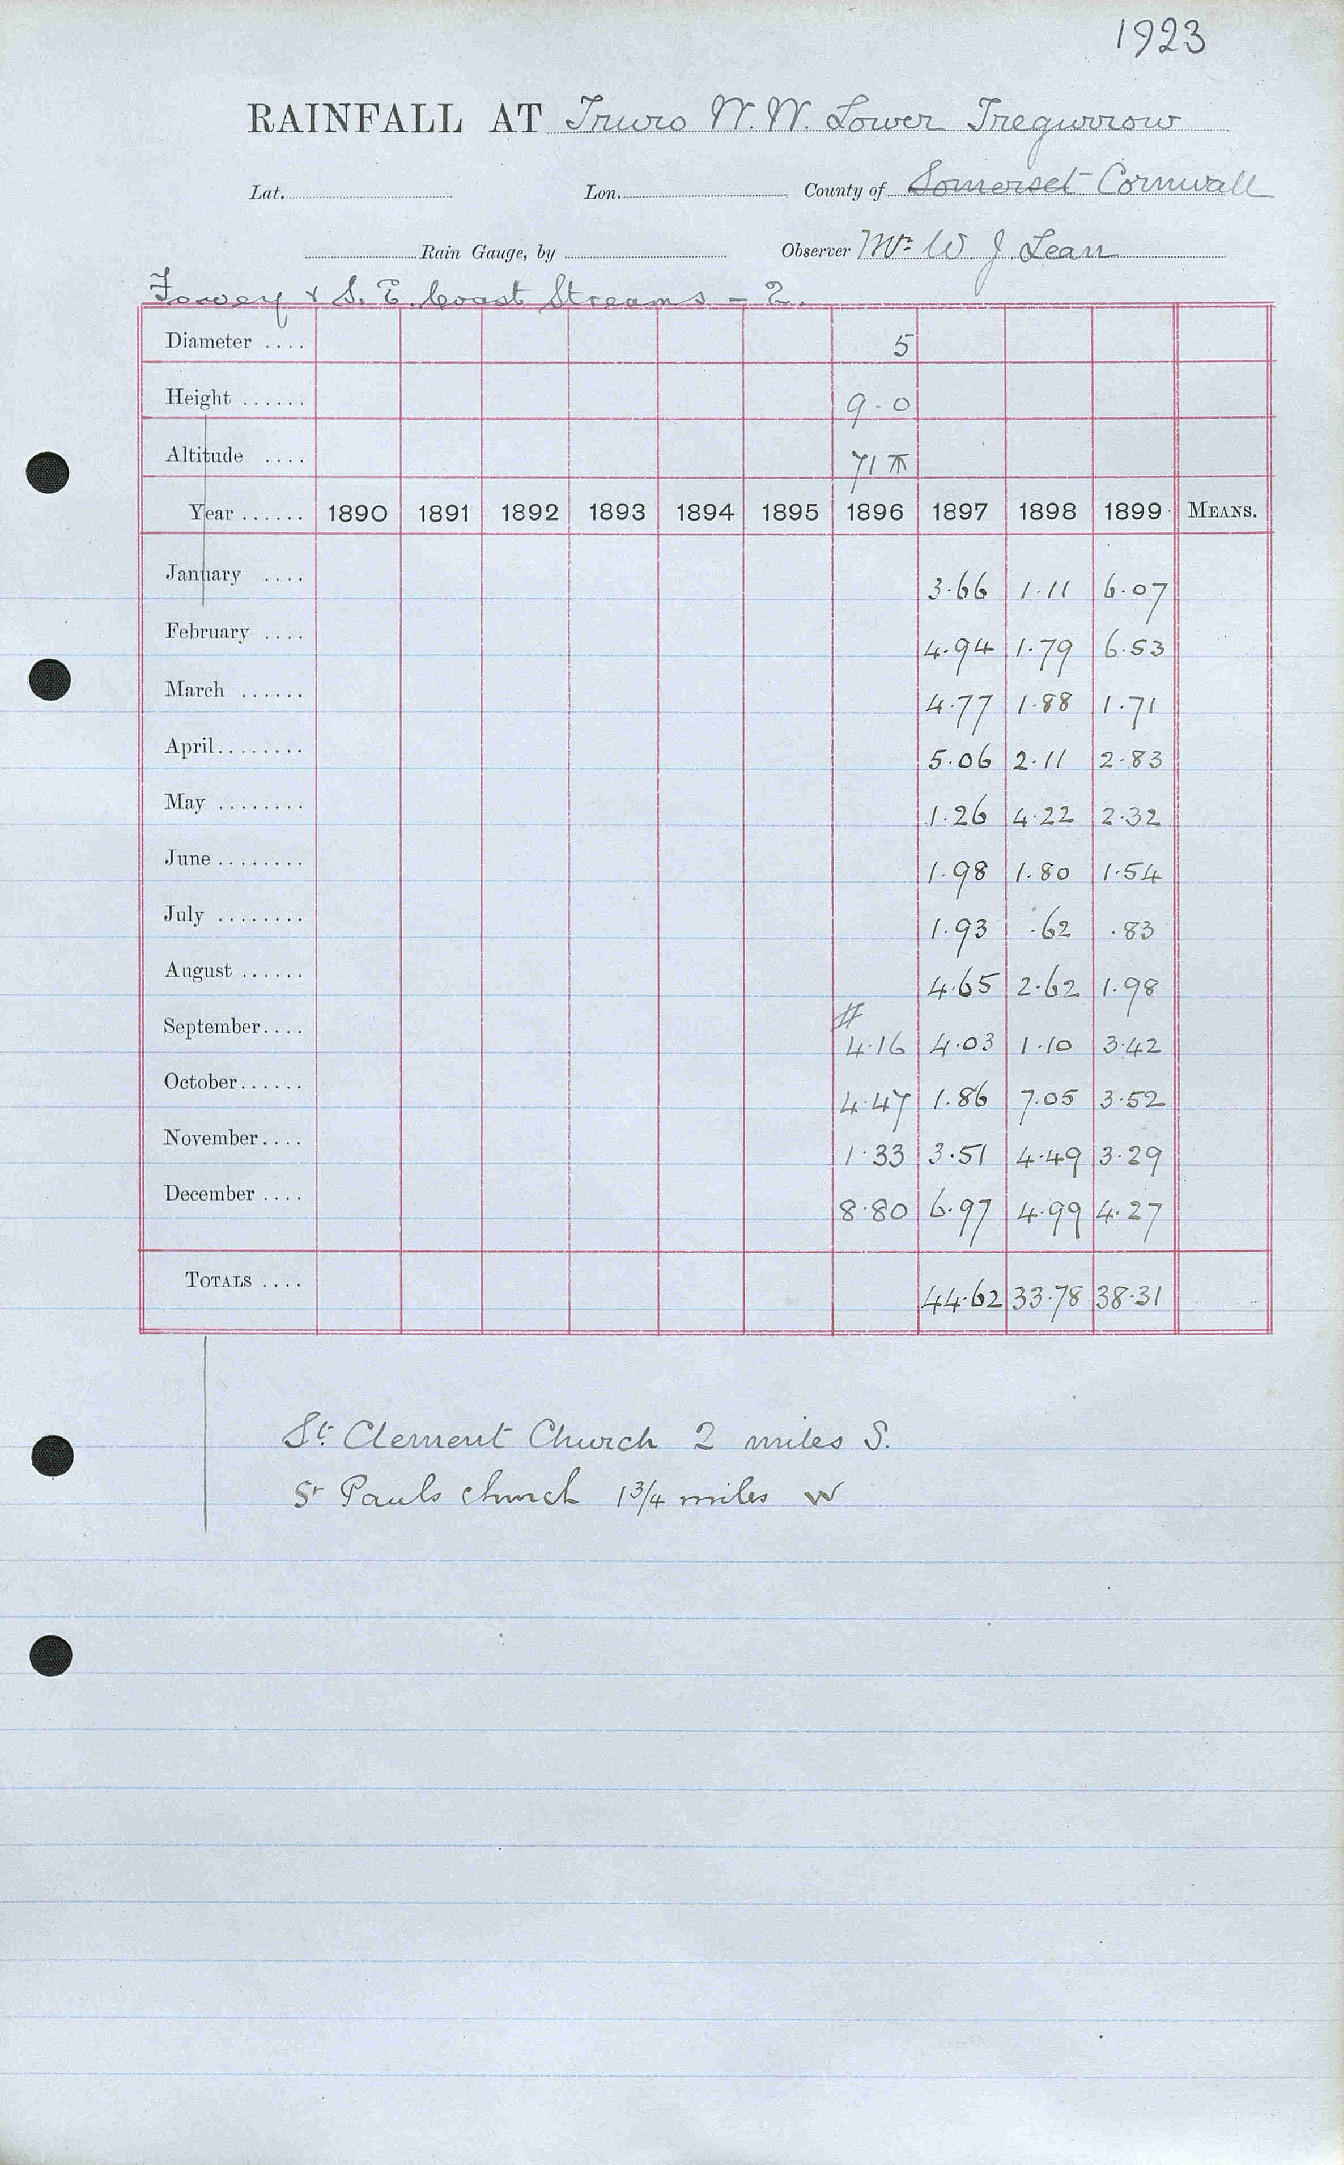 1923
RAINFALL AT Truro W.W. Lower Tregurrow
Lat. Lon. County of Somerset Cornwall
Rain Gauge, by Observer Mr. W J Lean
Fowey & S. E. Coast Streams - 2.
Diameter .... 5
Height ...... 9.0
Altitude .... 71
Year ...... 1890 1891 1892 1893 1894 1895 1896 1897 1898 1899 MEANS.
January .... 3.66 1.11 6.07
February .... 4.94 1.79 6.53
March ...... 4.77 1.88 1.71
April........ 5.06 2.11 2.83
May ........ 1.26 4.22 2.32
June ........ 1.98 1.80 1.54
July ........ 1.93 .62 .83
August ...... 4.65 2.62 1.98
#
September.... 4.16 4.03 1.10 3.42
October...... 4.47 1.86 7.05 3.52
November.... 1.33 3.51 4.49 3.29
December .... 8.80 6.97 4.99 4.27
TOTALS .... 44.62 33.78 38.31
St. Clement Church 2 miles S.
St Pauls church 1 3/4 miles W